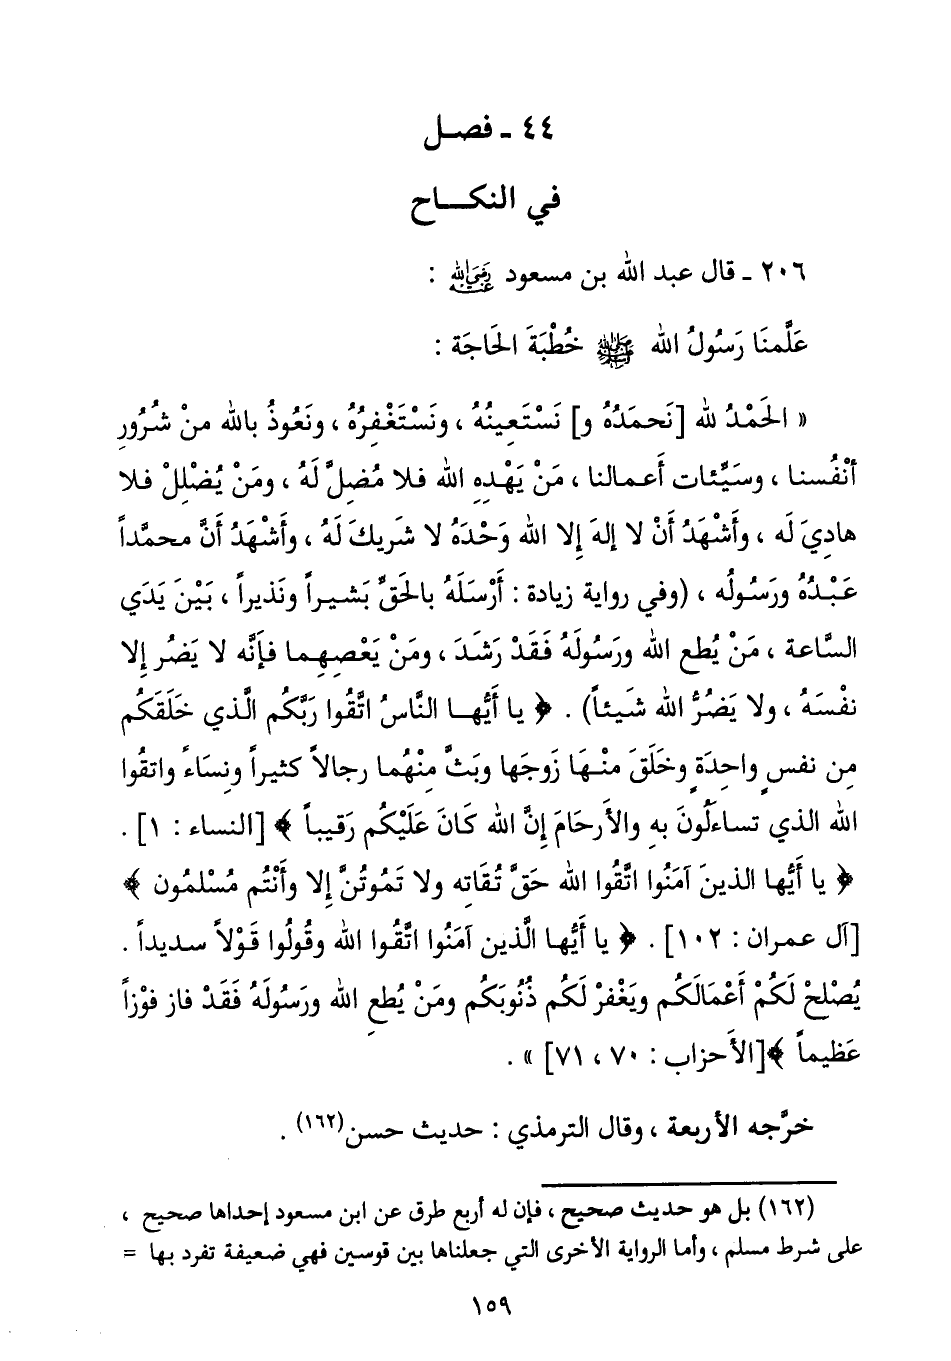 ٤٤ ـ فصـل
في النكـــاح
٢٠٦ ـ قال عبد الله بن مسعود رضي الله عنه :
عَلَّمنَا رَسُولُ الله ﷺ خُطْبَةَ الحَاجَة :
« الحَمْدُ لله [نَحمَدُهُ و] نَسْتَعِينُهُ ، ونَسْتَغْفِرُهُ ، ونَعُوذُ بالله منْ شُرُورِ
أنْفُسنا ، وسَيِّئات أَعمالنا ، مَنْ يَهْدِهِ الله فلا مُضلَّ لَهُ ، ومَنْ يُضْلِلْ فلا
هادِيَ لَه ، وأَشْهَدُ أَنْ لا إلهَ إلا الله وَحْدَهُ لا شَريكَ لَهُ ، وأَشْهَدُ أَنَّ محمَّداً
عَبْدُهُ ورَسُولُه ، (وفي رواية زيادة : أَرْسَلَهُ بالحَقِّ بَشيراً ونَذيراً ، بَيْنَ يَدَي
السَّاعة ، مَنْ يُطعِ الله ورَسُولَهُ فَقَدْ رَشَدَ ، ومَنْ يَعْصِهِما فإنَّه لا يَضُر إلا
نفْسَهُ ، ولا يَضُرُّ الله شَيئاً) . ﴿ يا أَيُّهـا النَّاسُ اتَّقُوا رَبَّكُم الَّذي خَلَقَكُم
مِن نفسٍ واحِدَةٍ وخَلَقَ منْـهَا زَوجَها وبَثَّ مِنْهُما رجالاً كثيراً ونِسَاءً واتقُوا
الله الذي تساءَلُونَ به والأَرحَامَ إنَّ الله كَانَ عَلَيْكُم رَقيباً ﴾ [النساء : ١] .
﴿ يا أَيُّها الذينَ آمَنُوا اتَّقُوا الله حَقَّ تُقَاتِه ولا تَمُوتُنَّ إلا وأَنْتُم مُسْلمُون ﴾
[آل عمران : ١٠٢] . ﴿ يا أَيُّها الَّذين آمَنُوا اتَّقُوا الله وقُولُوا قَوْلاً سديداً .
يُصْلحْ لَكُمْ أَعْمَالَكُم ويَغْفرْ لَكُم ذُنُوبَكُم ومَنْ يُطعِ الله ورَسُولَهُ فَقَدْ فاز فوْزاً
عَظيماً ﴾[الأَحزاب : ٧٠ ، ٧١] » .
خرَّجه الأربعة ، وقال الترمذي : حديث حسن(١٦٢) .
(١٦٢) بل هو حديث صحيح ، فإن له أربع طرق عن ابن مسعود إحداها صحيح ،
على شرط مسلم ، وأما الرواية الأخرى التي جعلناها بين قوسين فهي ضعيفة تفرد بها =
١٥٩